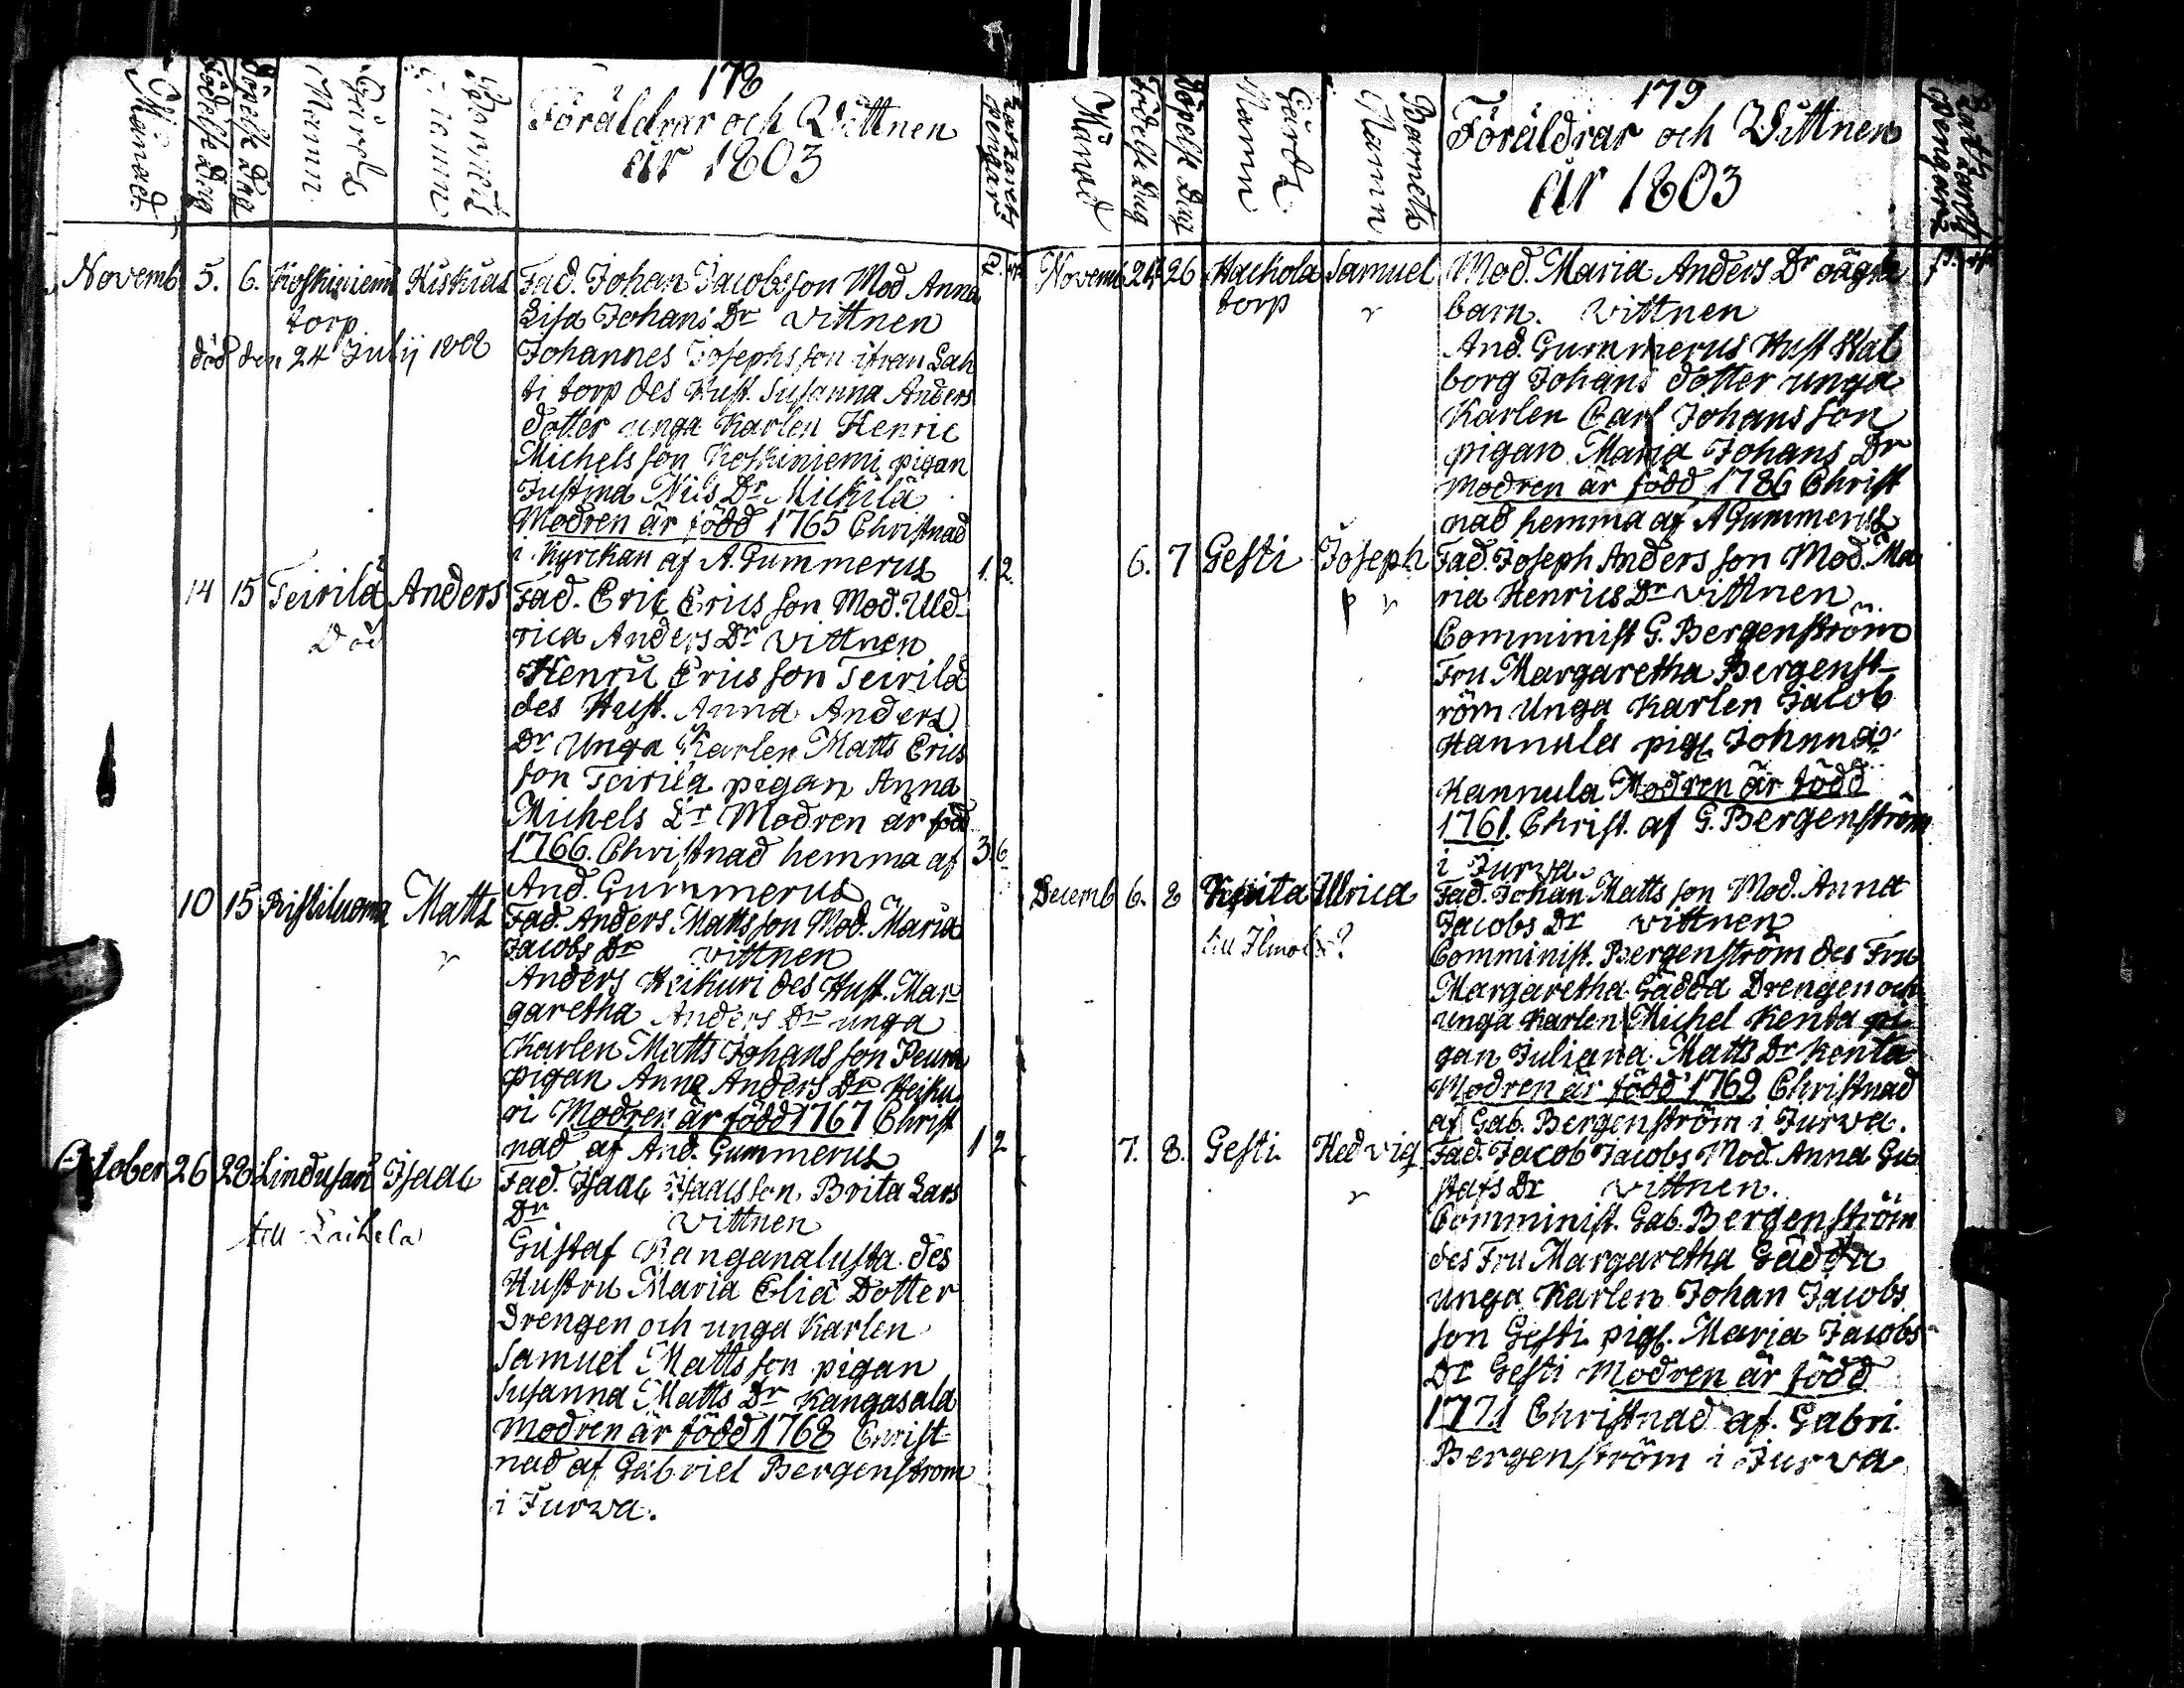 178
Månad
Födelse Dag
Döpelse Dag
Gårds Namn
Barnets Namn
Föräldrar och Vittnen
år 1803
Novemb 5. 6. Koskiniemi Hiskias Fad. Johan Jacobsson Mod Anna
torp Lisa Johans Dr vittnen
död den 24 Julij 1808 Johannes Josephsson ifran Lah
ti torp des Hust. Susanna Anders
dotter unga Karlen Henric
Michelsson Koskiniemi pigan
Justina Nils Dr Mickilä
Modren är född 1765 Christnad
i Kyrckan af A. Gummerus 1. 2.
14 15 Teirilä Anders Fad. Eric Ericsson Mod. Uld-
Död rica Anders Dr vittnen
Henric Ericsson Teirilä
des Hust. Anna Anders
Dr Unga Karlen Matts Erics
son Teirilä pigan Anna
Michels Dr Modren är född
1766. Christnad hemma af 3. 6.
And. Gummerus
10 15 Ristiluoma Matts Fad. Anders Mattsson Mod. Maria
Jacobs Dr vittnen
Anders Heikuri des Hust. Mar-
garetha Anders Dr unga
Karlen Matts Johansson Peura
pigan Anna Anders Dr Heiku
ri Modren är född 1767 Christ
nad af And. Gummerus 1 2
October 26 28 Lindusari Isaac Fad. Isaac Isacsson Brita Lars
Dr vittnen
till Laihela Gustaf Kanganalusta des
Hustru Maria Elia Dotter
Drengen och unga Karlen
Samuel Mattsson pigan
Susanna Matts Dr Kangasala
Modren är född 1768 Christ-
nad af Gabriel Bergenstrom
i Jurva.
179
Månad
Födelse Dag
Döpelse Dag
Gårds Namn
Barnets Namn
Föräldrar och Vittnen
år 1803
Novemb 24 26 Hackola Samuel Mod. Maria Anders Dr oägta
torp barn. vittnen
And. Gummerus Hust Wal
borg Johans dotter unga
Karlen Carl Johansson
pigan Maria Johans Dr
Modren är född 1786 Christ
nad hemma af A Gummerus
6. 7 Gesti Joseph Fad. Joseph Andersson Mod. Ma
ria Henrics Dr vittnen
Comminist G. Bergenström
Fru Margaretha Bergenst-
röm Unga Karlen Jacob
Hannula pig. Johanna
Hannula Modren är född
1761. Christ. af G. Bergenström
i Jurva
Decemb 6. 8 Ulrica Fad. Johan Mattsson Mod. Anna
Jacobs Dr vittnen
till Ilmola? Comminist. Bergenström des Fru
Margaretha Gädda Drengen och
unga Karlen Michel Kenta pi
gan Juliana Matts Dr Kenta
Modren är född 1769 Christnad
af Gab. Bergenström i Jurva.
7. 8. Gesti Hedvig Fad. Jacob Jacobs Mod. Anna Gu
stafs Dr vittnen.
Comminist. Gab. Bergenström
des Fru Margaretha Gädda
unga Karlen Johan Jacobs
son Gesti pig. Maria Jacobs
Dr Gesti Modren är född
1771 Christnad af Gabri.
Bergenström i Jurva